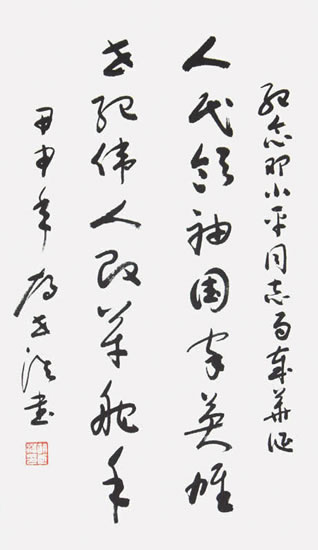 纪念邓小平同志百華诞
人民领袖国家英雄
世纪伟人改革舵手
甲申年书